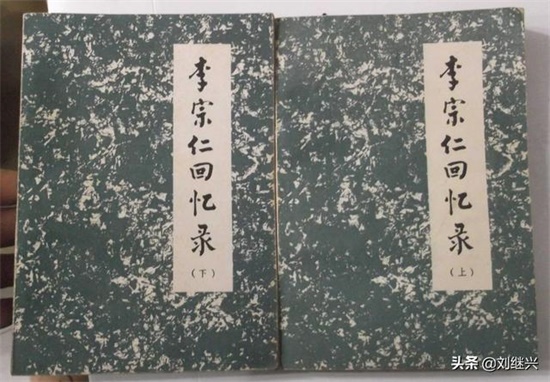 李宗仁回忆录
（下）
李宗仁回忆录
（上）
头条 @刘继兴